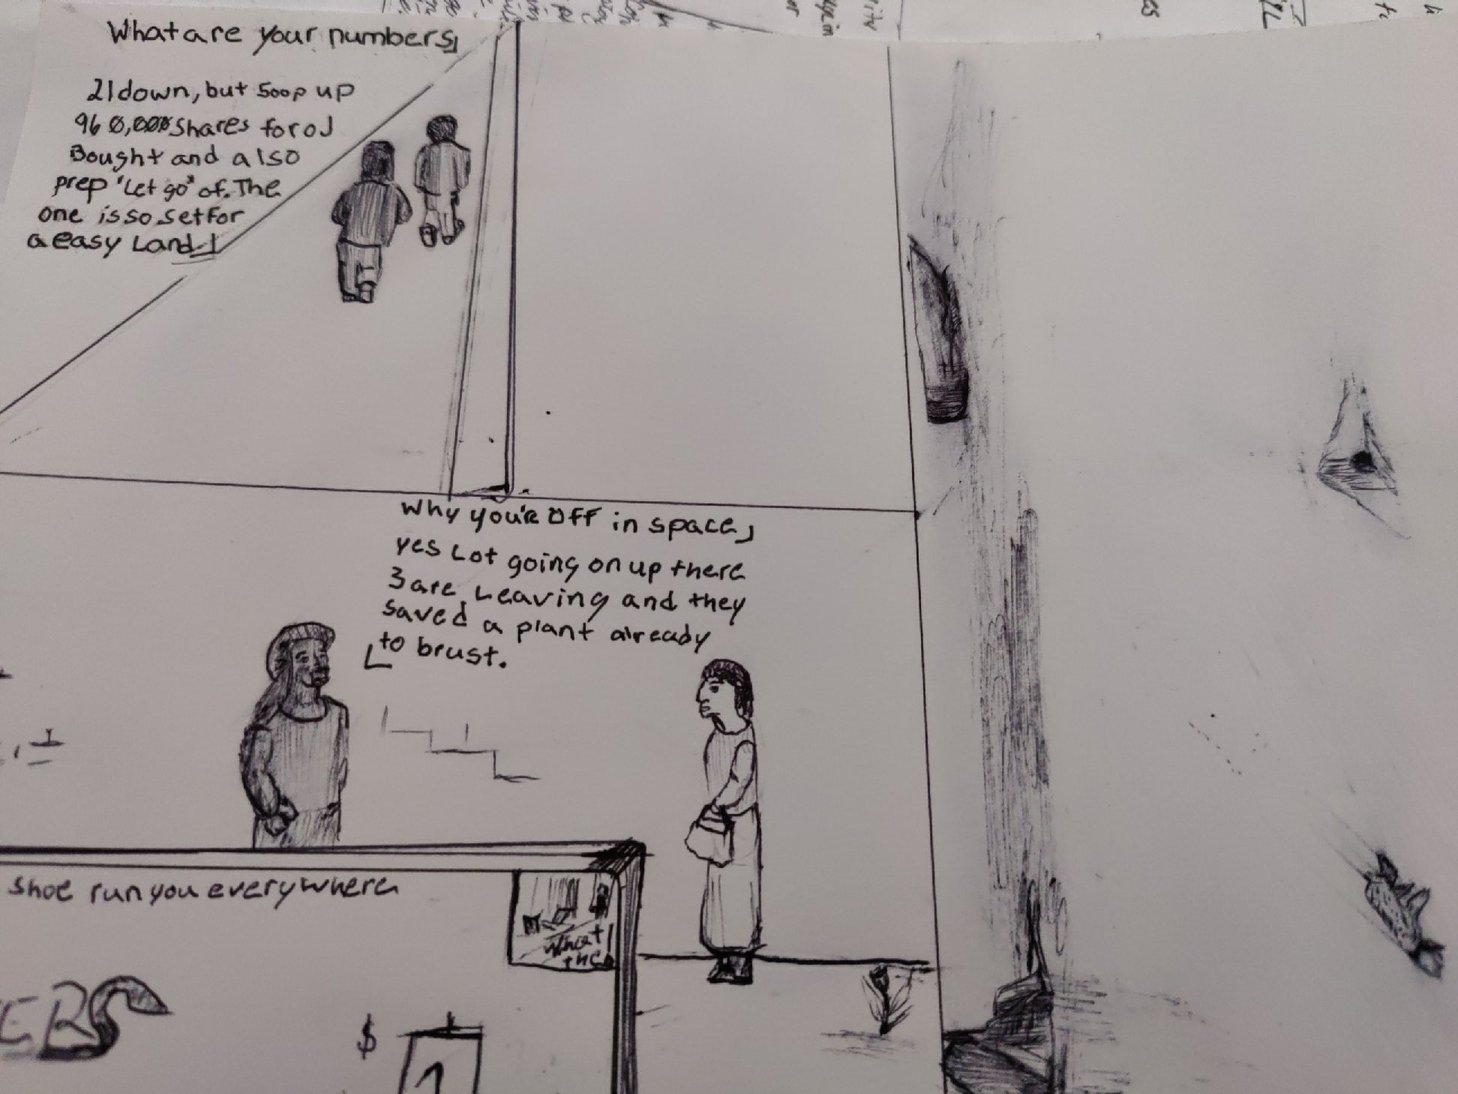 What are your numbers
21 down, but 500p up
960,000 shares for OJ
Bought and also
prep "Let go" of. The
one is so set for
a easy Land
Why you're OFF in space
yes Lot going on up there
3 are Leaving and they
saved a plant already
to brust.
shoe run you everywhere
What
the
$
1